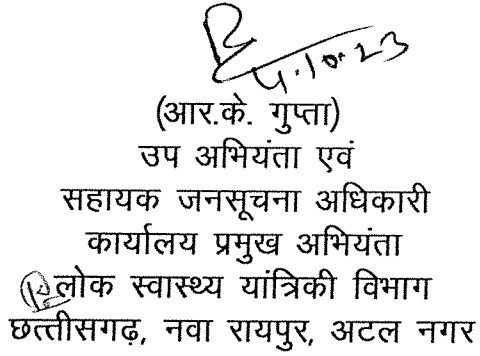 4.10.23
(आर.के. गुप्ता)
उप अभियंता एवं
सहायक जनसूचना अधिकारी
कार्यालय प्रमुख अभियंता
लोक स्वास्थ्य यांत्रिकी विभाग
छत्तीसगढ़, नवा रायपुर, अटल नगर